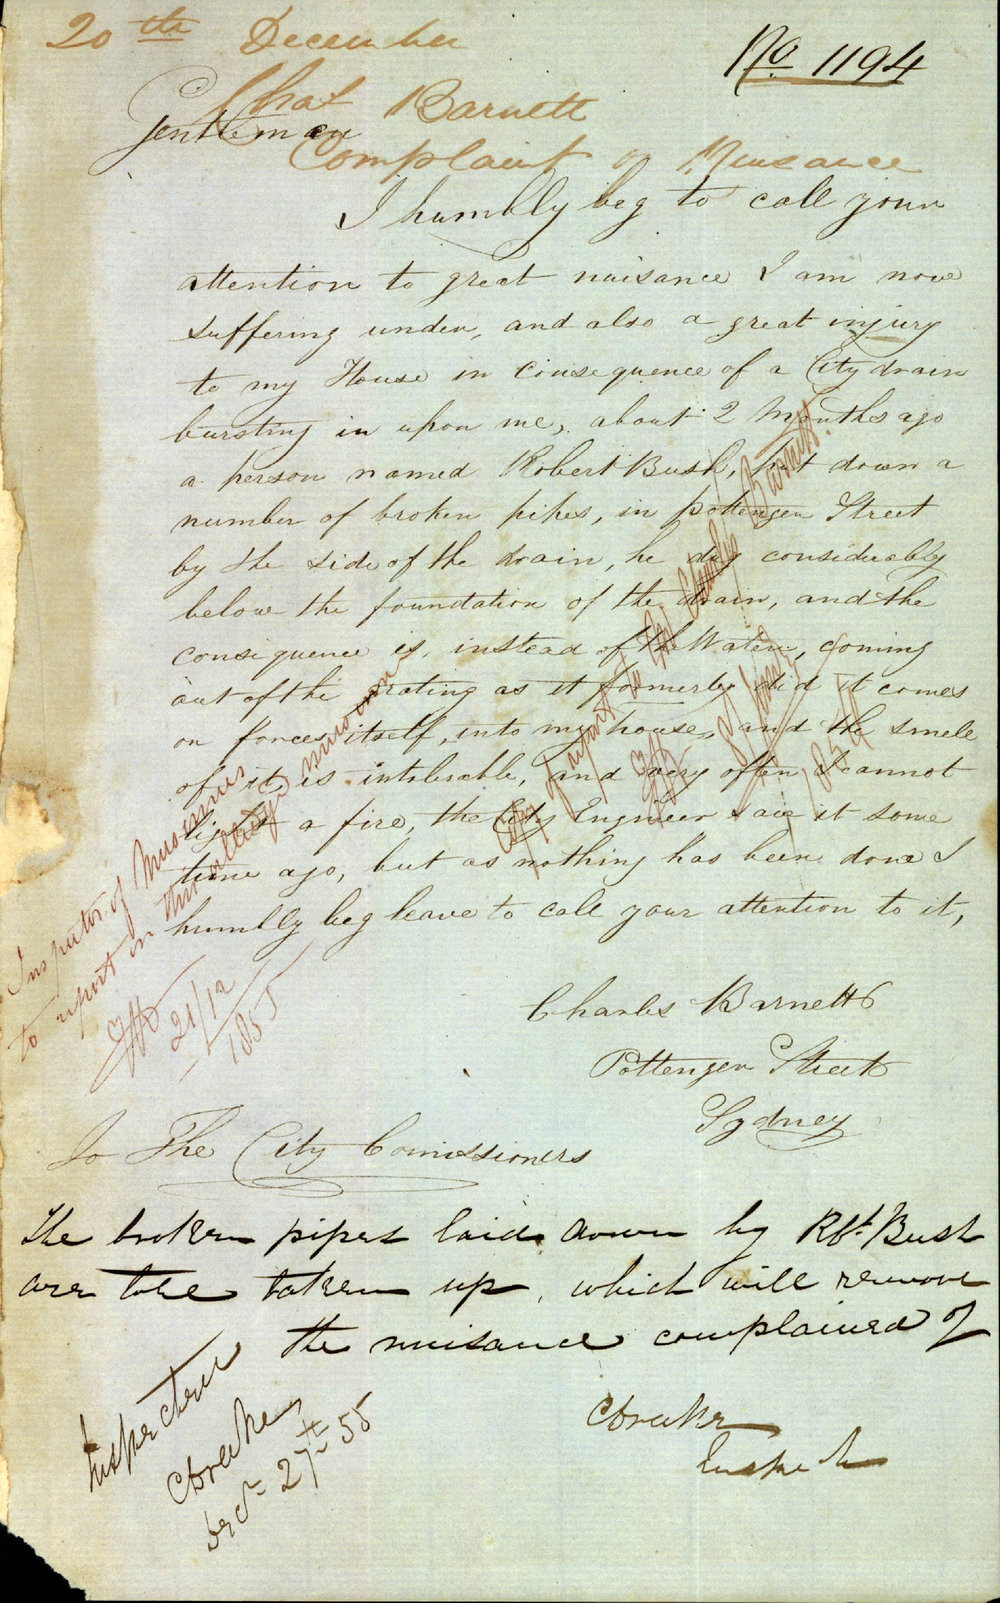 20th December
No. 1194
Chas Barnett
Gentlemen
Complaint of Nuisance
I humbly beg to call your
attention to great nuisance I am now
suffering under, and also a great injury
to my House in Consequence of a City drain
bursting in upon me, about 2 Months ago
a person named Robert Bush, put down a
number of broken pipes, in pottenger Street
by the side of the drain, he dug considerably
below the foundation of the drain, and the
consequence is, instead of the Water, coming
out of the grating as it formerly did it comes
or forces itself, into my house, and the smele
of it, is intolerable, and very often I cannot
light a fire, the City Engineer saw it some
time ago, but as nothing has been done I
humbly beg leave to call your attention to it,
Charles Barnett
Pottenger Street
Sydney
To The City Comissioners
Inspector of Nuisances
to report in this alledged nuisance
21/12
1855
Copy of report to
Barnett
The broken pipes laid down by Rbt. Bush
are to be taken up, which will remove
the nuisance complained of
Inspector
Decr 27th 55